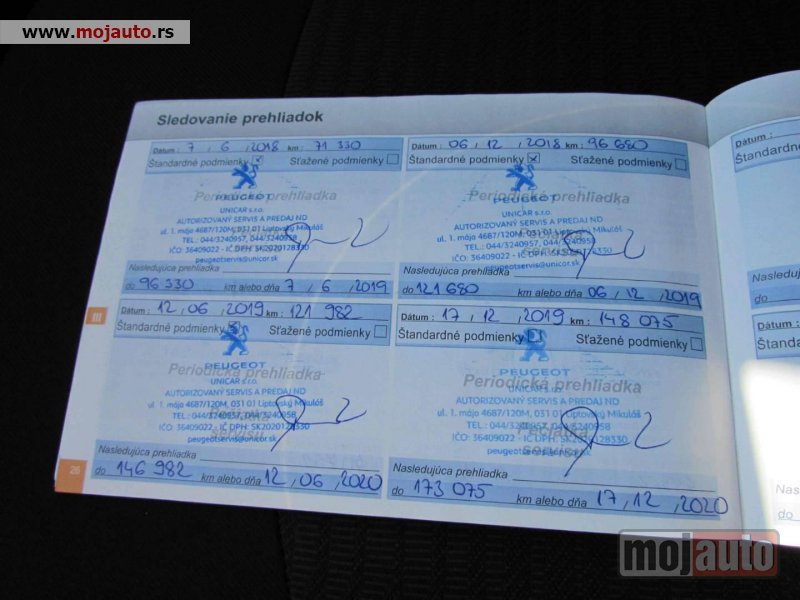 www.mojauto.rs
Sledovanie prehliadok
Dátum : 7 / 6 / 2018 km : 71 330
Štandardné podmienky Sťažené podmienky
Periodická prehliadka
PEUGEOT
UNICAR s.r.o.
AUTORIZOVANÝ SERVIS A PREDAJ ND
ul. 1. mája 4687/120M, 031 01 Liptovský Mikuláš
TEL.: 044/3240957, 044/3240958
IČO: 36409022 - IČ DPH: SK2020128330
peugeotservis@unicor.sk
Nasledujúca prehliadka
do 96 330 km alebo dňa 7 / 6 / 2019
Dátum : 06 / 12 / 2018 km : 96 680
Štandardné podmienky Sťažené podmienky
Periodická prehliadka
PEUGEOT
UNICAR s.r.o.
AUTORIZOVANÝ SERVIS A PREDAJ ND
ul. 1. mája 4687/120M, 031 01 Liptovský Mikuláš
TEL.: 044/3240957, 044/3240958
IČO: 36409022 - IČ DPH: SK2020128330
peugeotservis@unicor.sk
Nasledujúca prehliadka
do 121 680 km alebo dňa 06 / 12 / 2019
III
Dátum : 12 / 06 / 2019 km : 121 982
Štandardné podmienky Sťažené podmienky
Periodická prehliadka
PEUGEOT
UNICAR s.r.o.
AUTORIZOVANÝ SERVIS A PREDAJ ND
ul. 1. mája 4687/120M, 031 01 Liptovský Mikuláš
TEL.: 044/3240957, 044/3240958
IČO: 36409022 - IČ DPH: SK2020128330
peugeotservis@unicor.sk
Nasledujúca prehliadka
do 146 982 km alebo dňa 12 / 06 / 2020
Dátum : 17 / 12 / 2019 km : 148 075
Štandardné podmienky Sťažené podmienky
Periodická prehliadka
PEUGEOT
UNICAR s.r.o.
AUTORIZOVANÝ SERVIS A PREDAJ ND
ul. 1. mája 4687/120M, 031 01 Liptovský Mikuláš
TEL.: 044/3240957, 044/3240958
IČO: 36409022 - IČ DPH: SK2020128330
Pečiatka
servisu
Nasledujúca prehliadka
do 173 075 km alebo dňa 17 / 12 / 2020
26
Dátum :
Štandardné
Nasledujú
do
Dátum :
Štandardn
Nas
do
mojauto